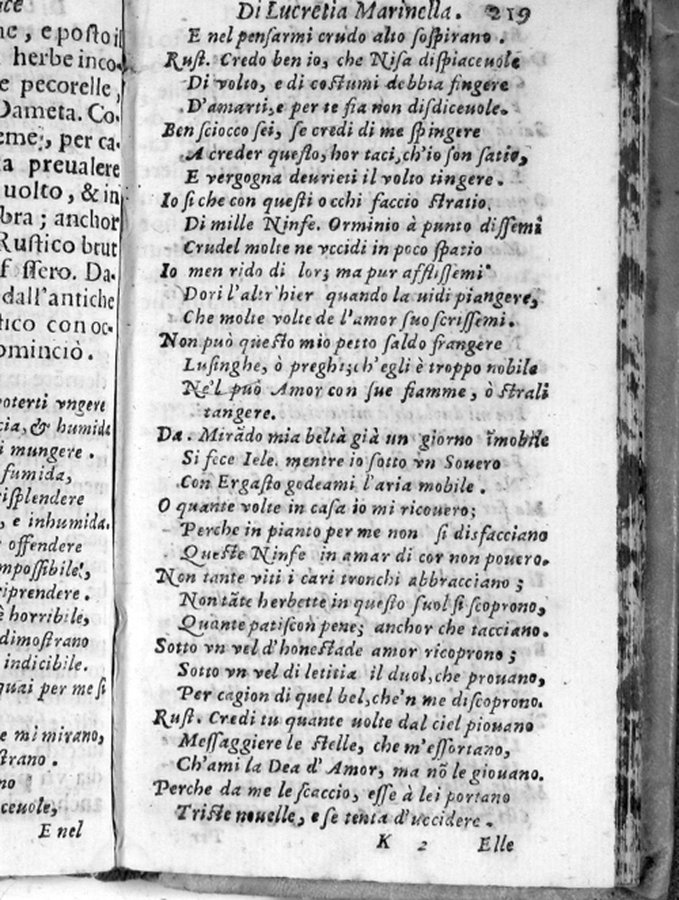 ne, e posto il
herbe inco-
e pecorelle,
Dameta. Co-
eme, per ca-
a preualere
uolto, & in
bra; anchor
Rustico brut
Da-
dall'antiche
tico con oc-
ominciò.
oterti vngere
cia, & humida
i mungere.
fumida,
risplendere
, e inhumida.
offendere
mpossibile,
riprendere.
è horribile,
dimostrano
indicibile.
quai per me si
e mi mirano,
strano.
no
ceuole,
E nel
Di Lucretia Marinella. 219
E nel pensarmi crudo alto sospirano.
Rust. Credo ben io, che Nisa dispiaceuole
Di volto, e di costumi debbia fingere
D'amarti, e per te fia non disdiceuole.
Ben sciocco sei, se credi di me spingere
A creder questo, hor taci, ch'io son satio,
E vergogna deurieti il volto tingere.
Io sì che con questi occhi faccio stratio,
Di mille Ninfe. Orminio à punto dissemi
Crudel molte ne vccidi in poco spatio
Io men rido di lor; ma pur afflissemi
Dori l'altr'hier quando la uidi piangere,
Che molte volte de l'amor suo scrissemi.
Non può questo mio petto saldo frangere
Lusinghe, ò preghi; ch'egli è troppo nobile
Ne'l può Amor con sue fiamme, ò strali
tangere.
Da. Mirãdo mia beltà già un giorno ĩmobile
Si fece Iele. mentre io sotto vn Souero
Con Ergasto godeami l'aria mobile.
O quante volte in casa io mi ricouero;
Perche in pianto per me non si disfacciano
Queste Ninfe in amar di cor non pouero.
Non tante viti i cari tronchi abbracciano;
Non tãte herbette in questo suol si scoprono,
Quante patiscon pene; anchor che tacciano.
Sotto vn vel d'honestade amor ricoprono;
Sotto vn vel di letitia il duol, che prouano,
Per cagion di quel bel, che'n me discoprono.
Rust. Credi tu quante uolte dal ciel piouano
Messaggiere le stelle, che m'essortano,
Ch'ami la Dea d'Amor, ma nõ le giouano.
Perche da me le scaccio, esse à lei portano
Triste nouelle, e se tenta d'uccidere.
K 2 Elle